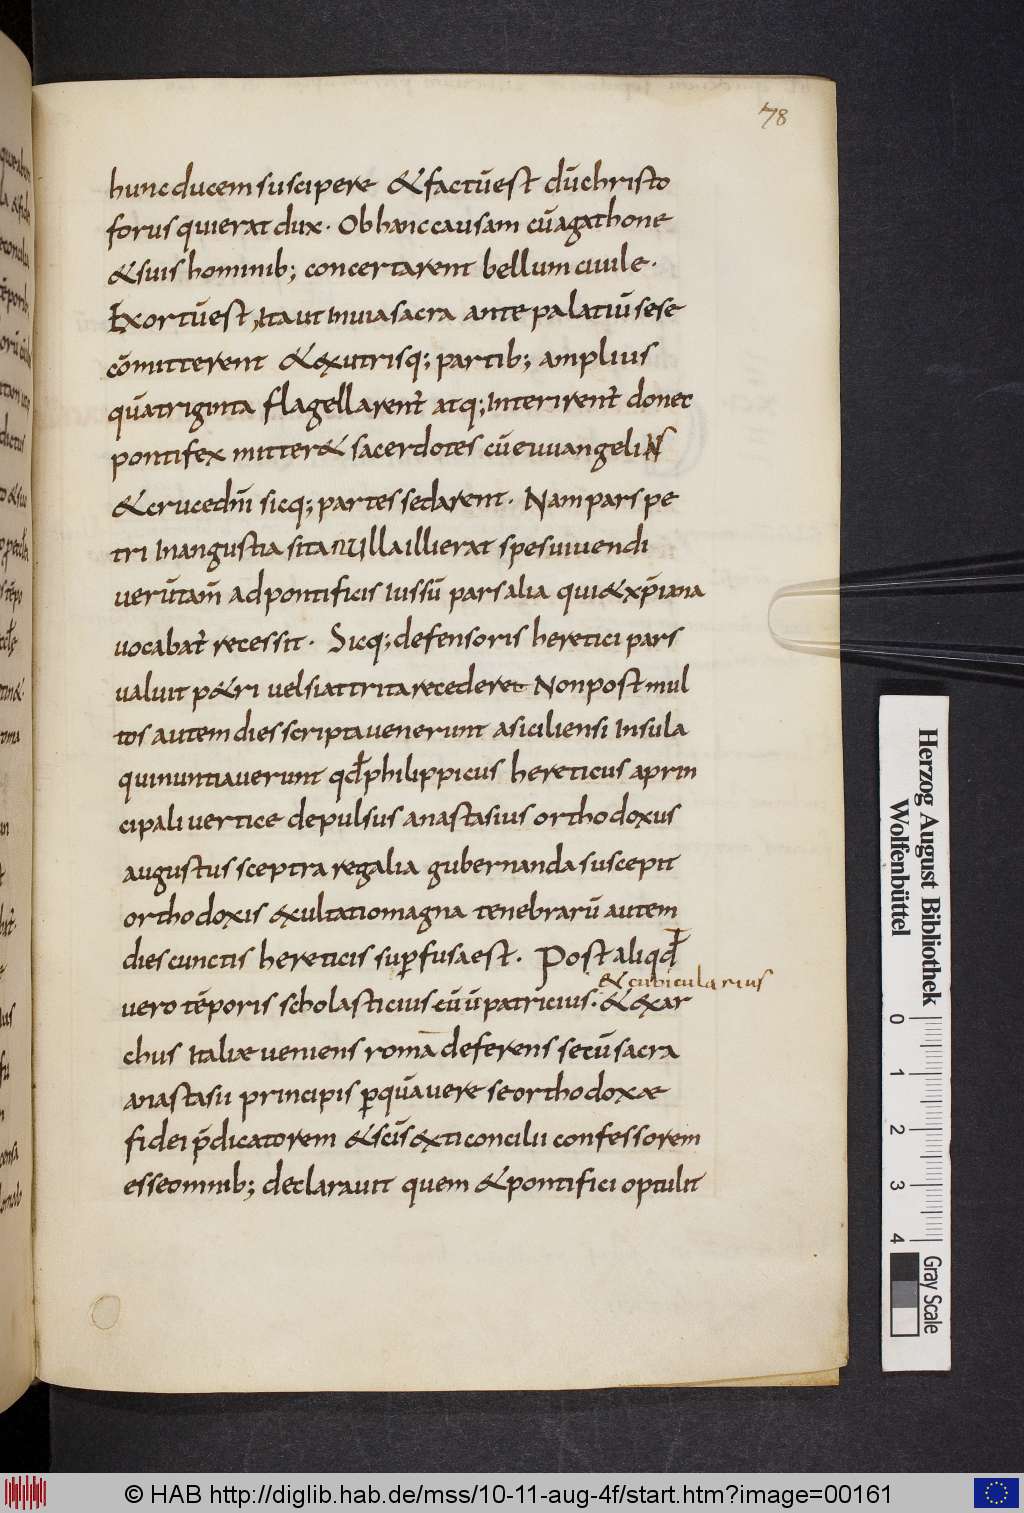 78
hunc ducem suscipere & factū est dū christo
forus qui erat dux · Ob hanc causam cū agathone
& suis hominib; concertarent bellum ciuile ·
Exortū est, Ita ut In uia sacra ante palatiū sese
cōmitterent & exutrisq; partib; amplius
quā triginta flagellarent̄ atq; Interirent̄ donec
pontifex mitter& sacerdotes cū euuangeliis
& cruce dn̄i sicq; partes sedarent · Nam pars pe
tri In angustia sita N ulla illi erat spes uiuendi
uerūtam̄ ad pontificis Iussū pars alia qui & xp̄iana
uocabat̄ recessit · Sicq; defensoris heretici pars
ualuit p&ri uelsi attrita recederet Non post mul
tos autem dies scripta uenerunt a siciliensi Insula
qui nuntiauerunt qđ philippicus hereticus a prin
cipali uertice depulsus anastasius orthodoxus
augustus sceptra regalia gubernanda suscepit
orthodoxis exultatio magna tenebrarū autem
dies cunctis hereticis sup̄fusa est · Post aliqđ
& cubicularius
uero tēporis scholasticius cū ū patricius · & exar
chus Italiæ ueniens romā deferens secū sacra
anastasii principis p̄ quā uere se orthodoxæ
fidei p̄dicatorem & sc̄is exti concilii confessorem
esse omnib; declarauit quem & pontifici optulit
Herzog August Bibliothek
Wolfenbüttel
0 1 2 3 4
Gray Scale
© HAB http://diglib.hab.de/mss/10-11-aug-4f/start.htm?image=00161